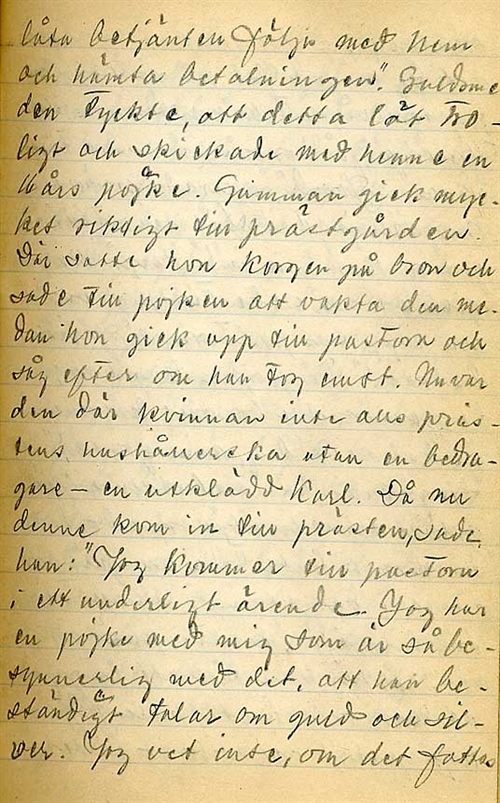 låta betjänten följa med hem
och hämta betalningen". Guldsme
den tyckte, att detta lät tro-
ligt och skickade med henne en
16års pojke. Gumman gick myc-
ket riktigt till prästgården.
Där satte hon korgen på bron och
sade till pojken att vakta den me-
dan hon gick upp till pastorn och
såg efter om han tog emot. Nu var
den där kvinnan inte alls präs-
tens hushållerska utan en bedra-
gare — en utklädd Karl. Då nu
denne kom in till prästen, sade
han: "Jag kommer till pastorn
i ett underligt ärende. Jag har
en pojke med mig som är så be-
synnerlig med det, att han be-
ständigt talar om guld och sil-
ver. Jag vet inte, om det fattas